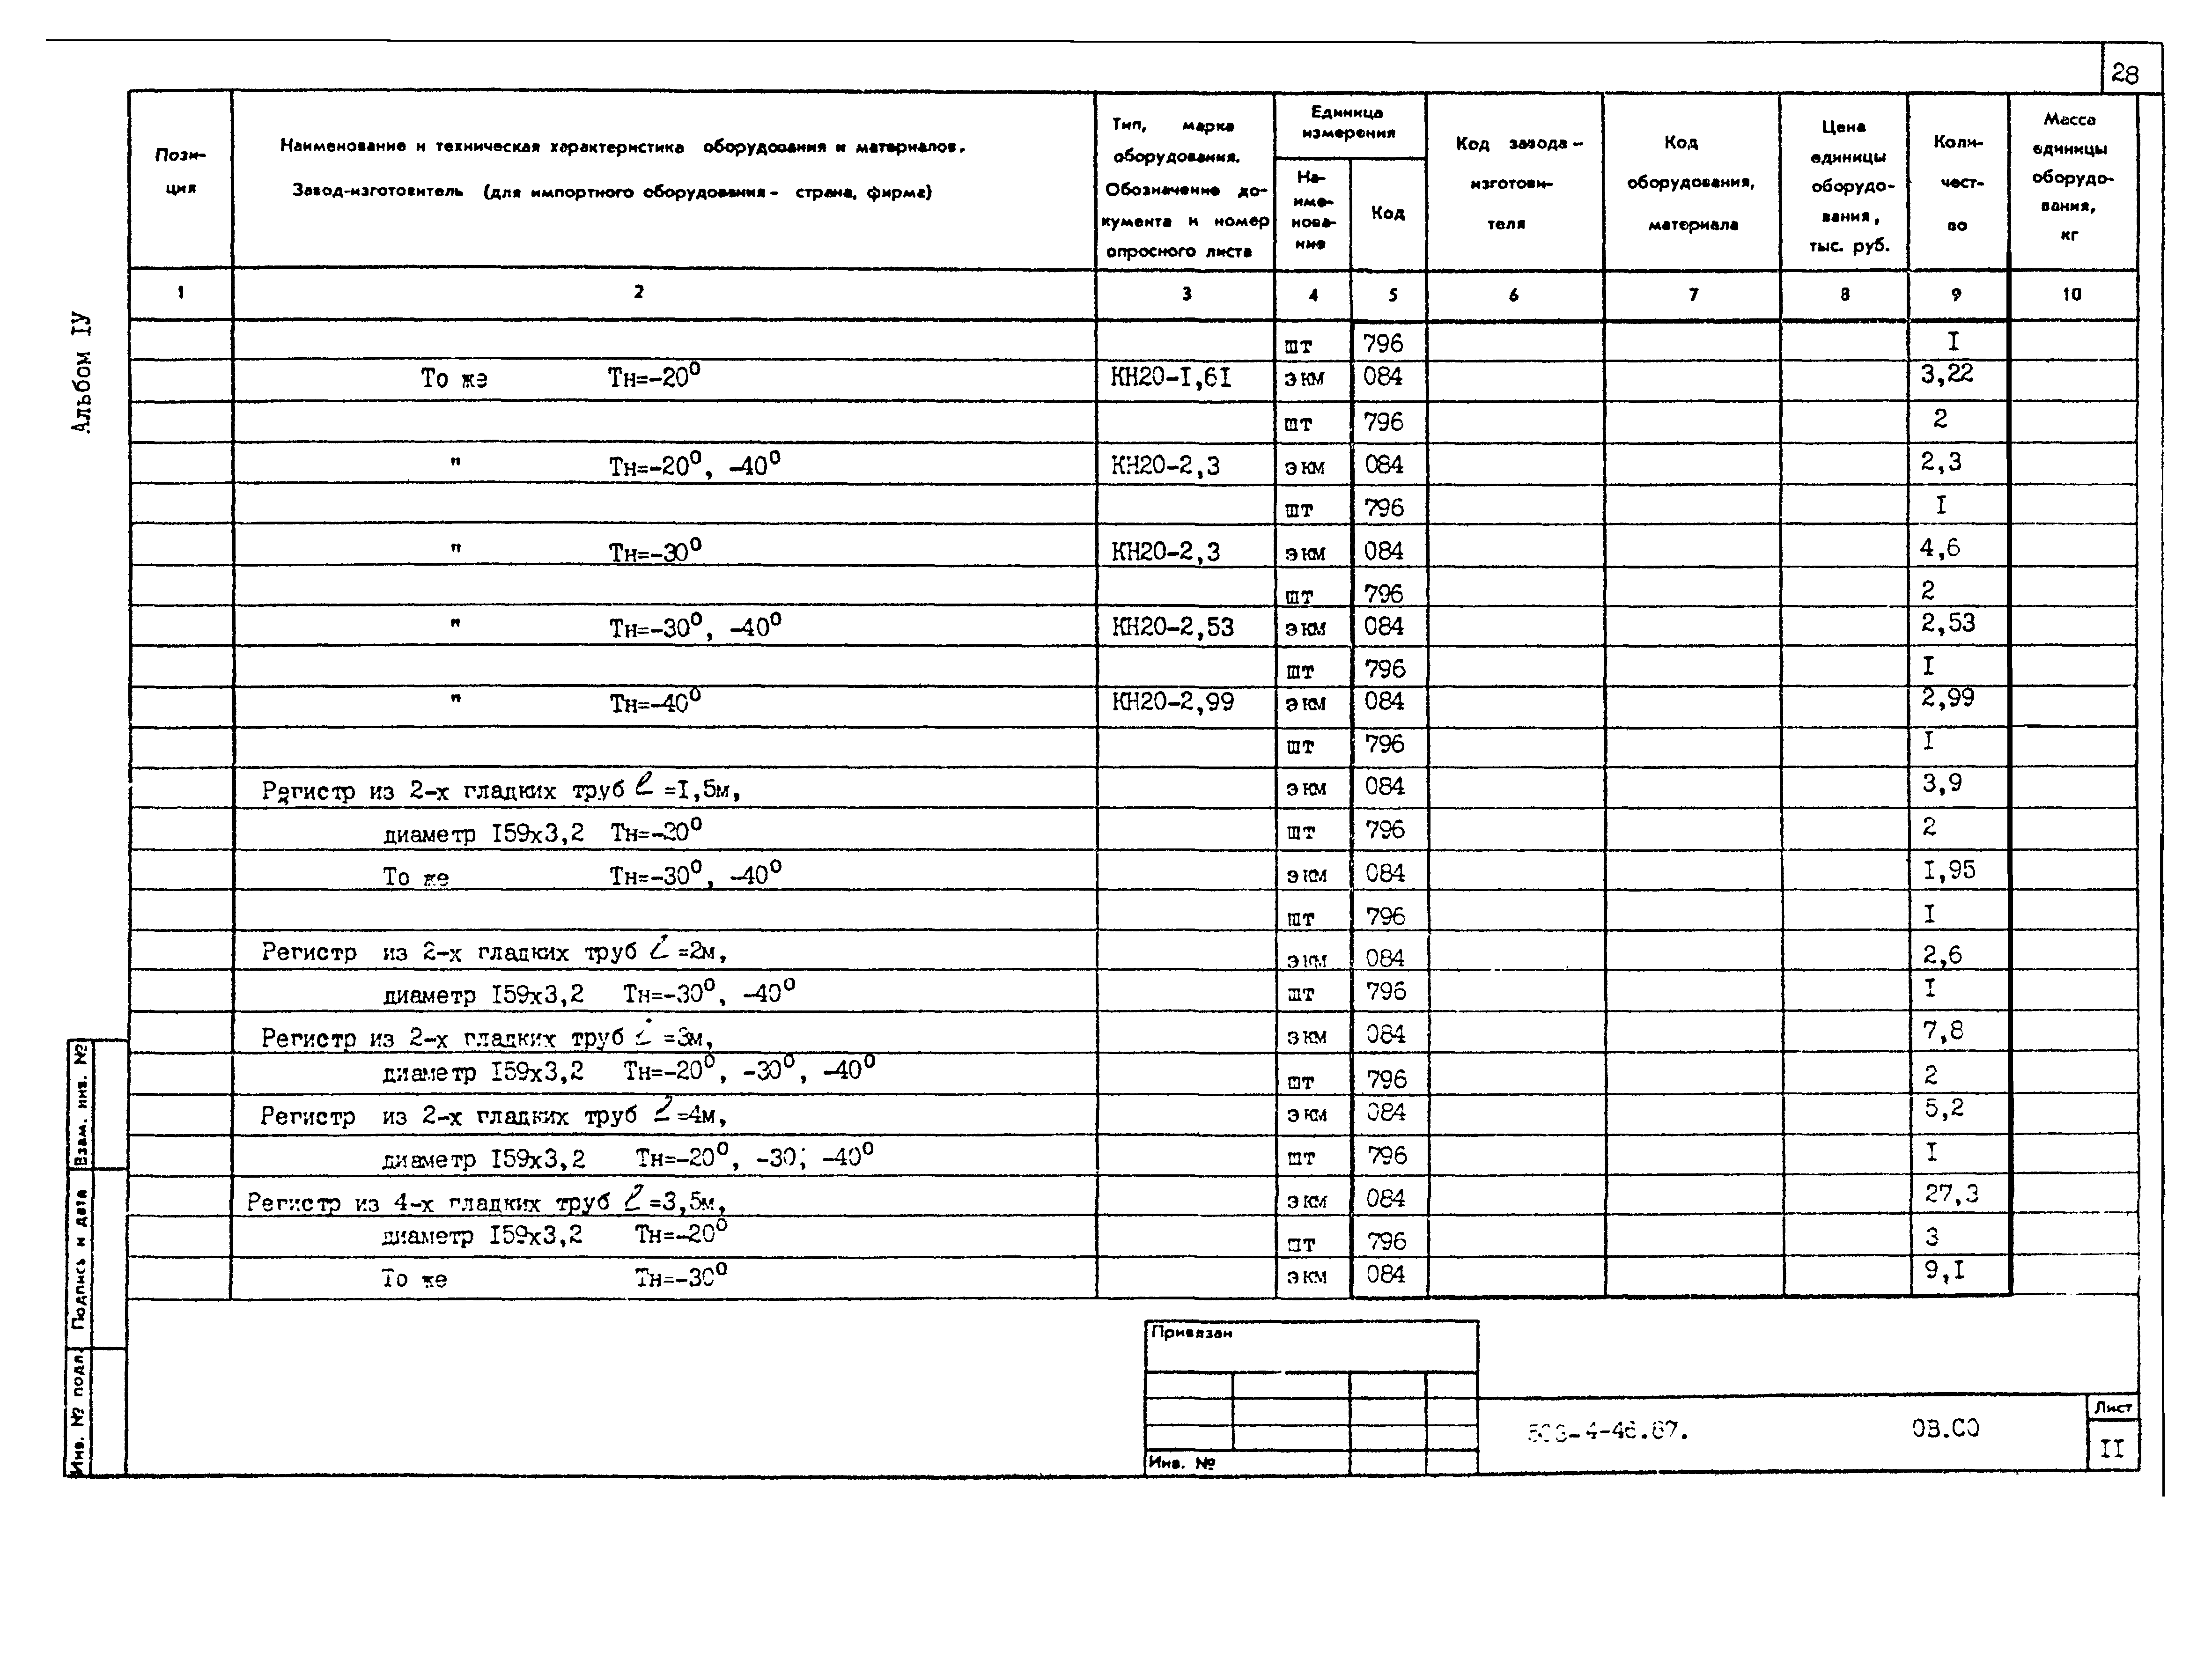 28
Альбом IУ
Пози-
ция
Наименование и техническая характеристика оборудования и материалов.
Завод-изготовитель (для импортного оборудования - страна, фирма)
Тип, марка
оборудования.
Обозначение до-
кумента и номер
опросного листа
Единица
измерения
На-
име-
нова-
ние
Код
Код завода-
изготови-
теля
Код
оборудования,
материала
Цена
единицы
оборудо-
вания,
тыс. руб.
Коли-
чест-
во
Масса
единицы
оборудо-
вания,
кг
1 2 3 4 5 6 7 8 9 10
шт 796 I
То же Тн=-20° КН20-I,6I экм 084 3,22
шт 796 2
" Тн=-20°, -40° КН20-2,3 экм 084 2,3
шт 796 I
" Тн=-30° КН20-2,3 экм 084 4,6
шт 796 2
" Тн=-30°, -40° КН20-2,53 экм 084 2,53
шт 796 I
" Тн=-40° КН20-2,99 экм 084 2,99
шт 796 I
Регистр из 2-х гладких труб ℓ=I,5м, экм 084 3,9
диаметр I59х3,2 Тн=-20° шт 796 2
То же Тн=-30°, -40° экм 084 I,95
шт 796 I
Регистр из 2-х гладких труб ℓ=2м, экм 084 2,6
диаметр I59х3,2 Тн=-30°, -40° шт 796 I
Регистр из 2-х гладких труб ℓ=3м, экм 084 7,8
диаметр I59х3,2 Тн=-20°, -30°, -40° шт 796 2
Регистр из 2-х гладких труб ℓ=4м, экм 084 5,2
диаметр I59х3,2 Тн=-20°, -30; -40° шт 796 I
Регистр из 4-х гладких труб ℓ=3,5м, экм 084 27,3
диаметр I59х3,2 Тн=-20° шт 796 3
То же Тн=-30° экм 084 9,I
Взам. инв. №
Подпись и дата
Инв. № подл.
Привязан
Инв. №
ОВ.СО
Лист
II